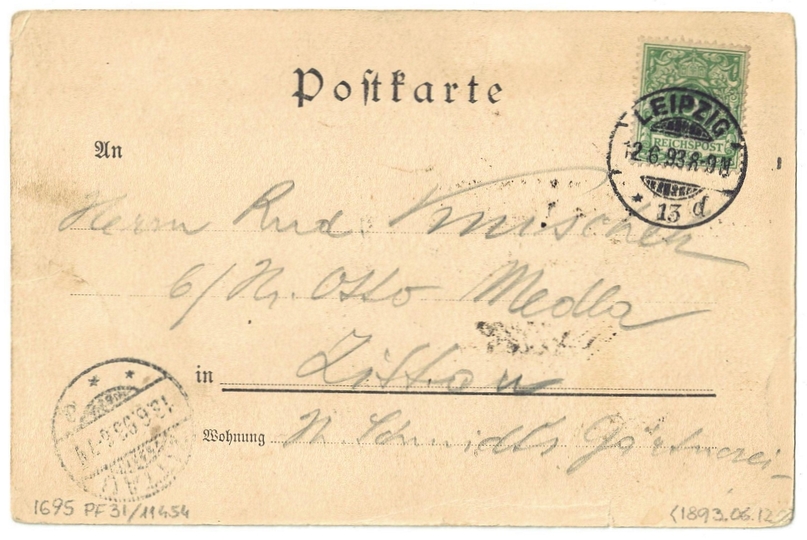 Postkarte
LEIPZIG
REICHSPOST
12.6.93.8-9N
* 13 d
An
Herrn Rud.
b/Hr. Otto Medla
in Zittau
Wohnung N. Schmidts Gärtnerei
13.6.93.6-7V
ZITTAU
1695 PF31/11454
(1893.06.12)